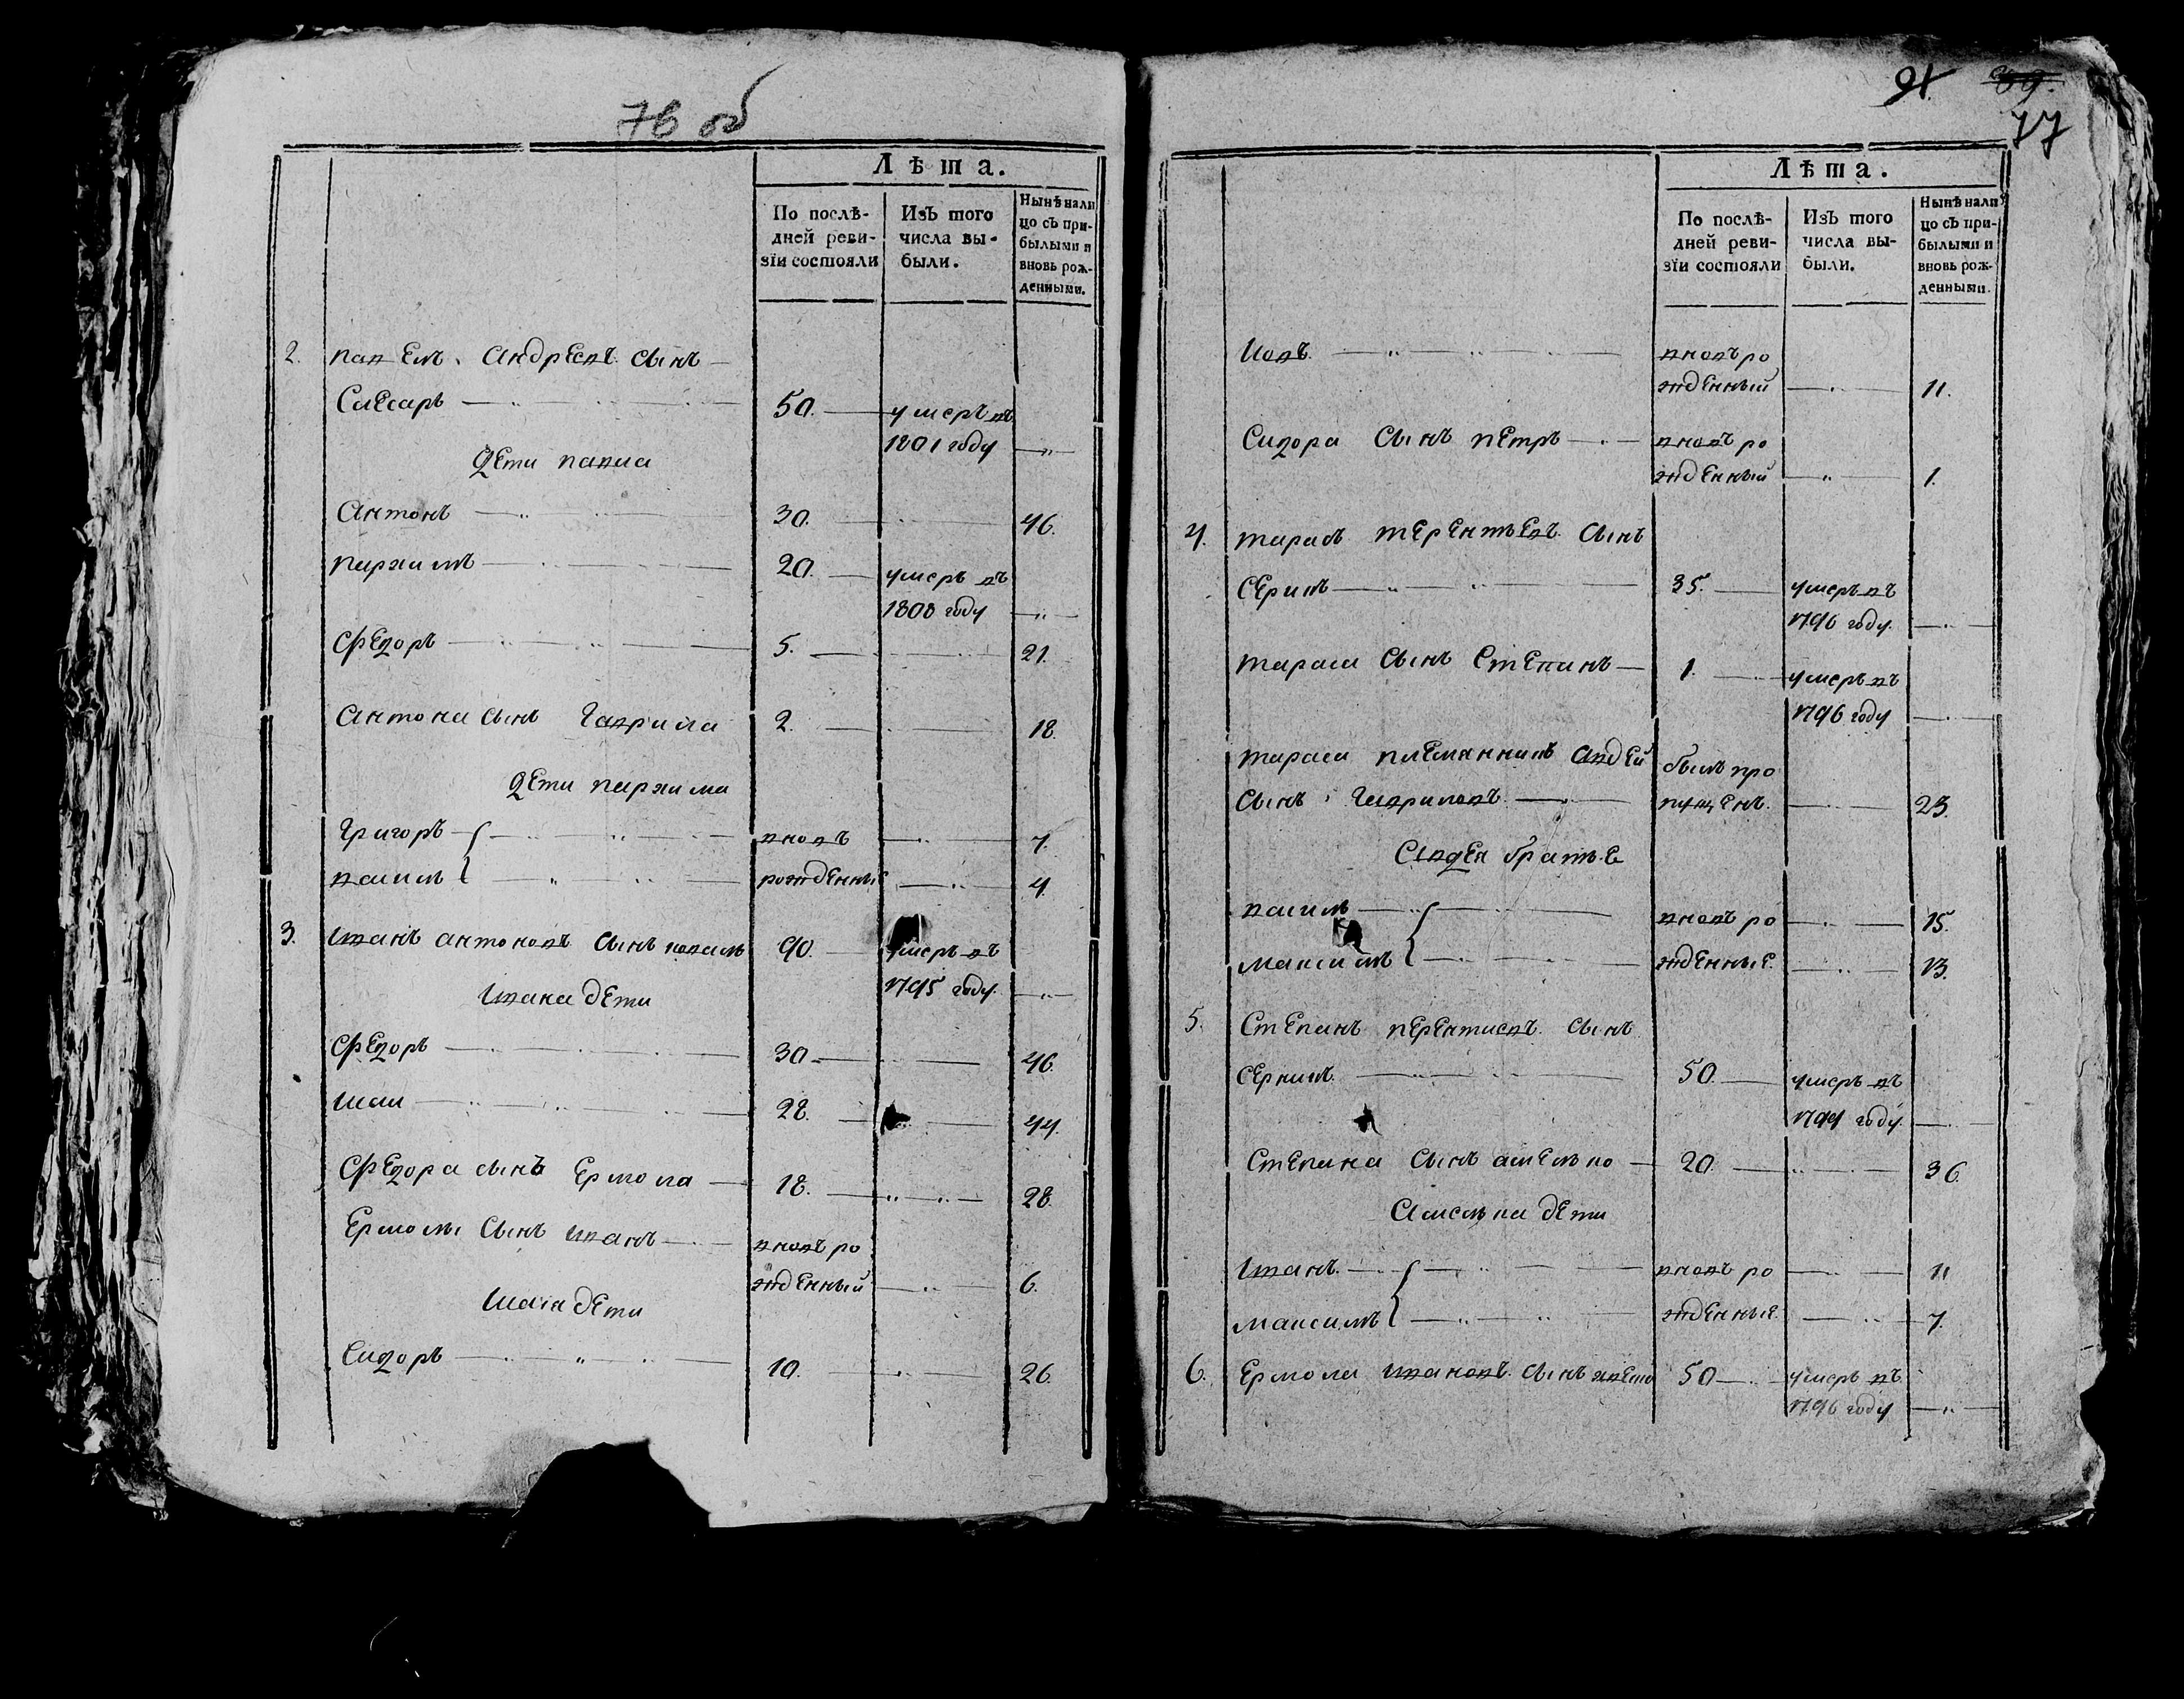 76 об
Лѣта.
По послѣ-
дней реви-
зїи состояли
Изъ того
числа вы-
были.
Нынѣ нали
цо съ при-
былыми и
вновь рож-
денными.
2. павелъ андреевъ сынъ
Слесарь 50. умеръ въ
1801 году
Дети павла
Антонъ 30. 46.
пархимъ 20. умеръ въ
1808 году
Федоръ 5. 21.
Антона сынъ Гаврила 2. 18.
Дети пархима
Григоръ вновъ 7.
василъ рожденные 4.
3. иванъ антоновъ сынъ ковалъ 90. умеръ въ
1795 году.
ивана дети
Федоръ 30 46.
илия 28. 44.
Федора сынъ Ермола 18. 28.
Ермолы сынъ иванъ вновъ ро
жденный 6.
дети
Сидоръ 10. 26.
91. 89.
77
Лѣта.
По послѣ-
дней реви-
зїи состояли
Изъ того
числа вы-
были.
Нынѣ нали
цо съ при-
былыми и
вновь рож-
денными.
Иовъ вновъ ро
жденный 11.
Сидора сынъ петръ вновъ ро
жденный 1.
4. тарасъ терентьевъ сынъ
35. умеръ въ
1796 году.
тараса сынъ степанъ 1. умеръ въ
1796 году
тараса племянникъ авдей былъ про
сынъ гавриловъ пущенъ. 23.
Авдея братье
василъ вновъ ро 15.
максимъ жденные. 13.
5. Степанъ сынъ
50. умеръ въ
году.
Степана сынъ амелко 20. 36.
Амелка дети
иванъ вновъ ро 11
максимъ жденные. 7.
6. Ермола ивановъ сынъ 50 умеръ въ
1796 году